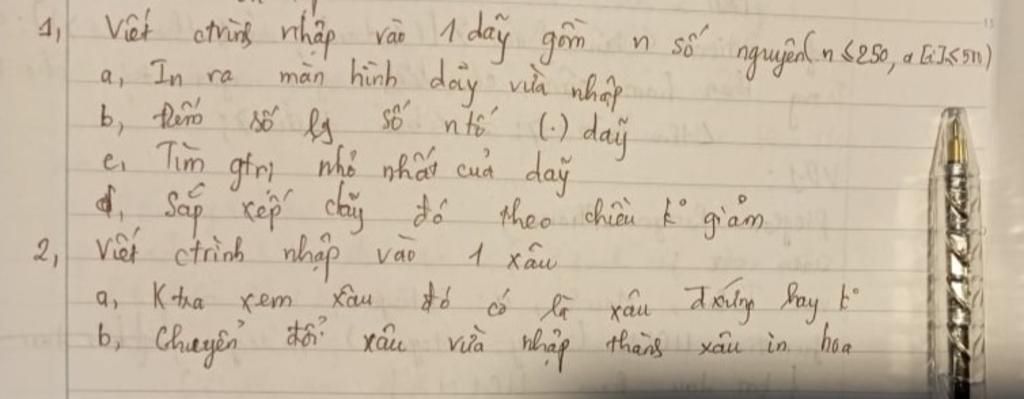 1, Viết ctrình nhập vào 1 dãy gồm n số nguyên (n ≤ 250, a[i] ≤ 500)
a, In ra màn hình dãy vừa nhập
b, Đếm số lg số ntố (.) dãy
c, Tìm gtrị nhỏ nhất của dãy
d, Sắp xếp dãy đó theo chiều kº giảm
2, Viết ctrình nhập vào 1 xâu
a, Ktra xem xâu đó có là xâu đxứng hay kº
b, Chuyển đổi xâu vừa nhập thành xâu in hoa